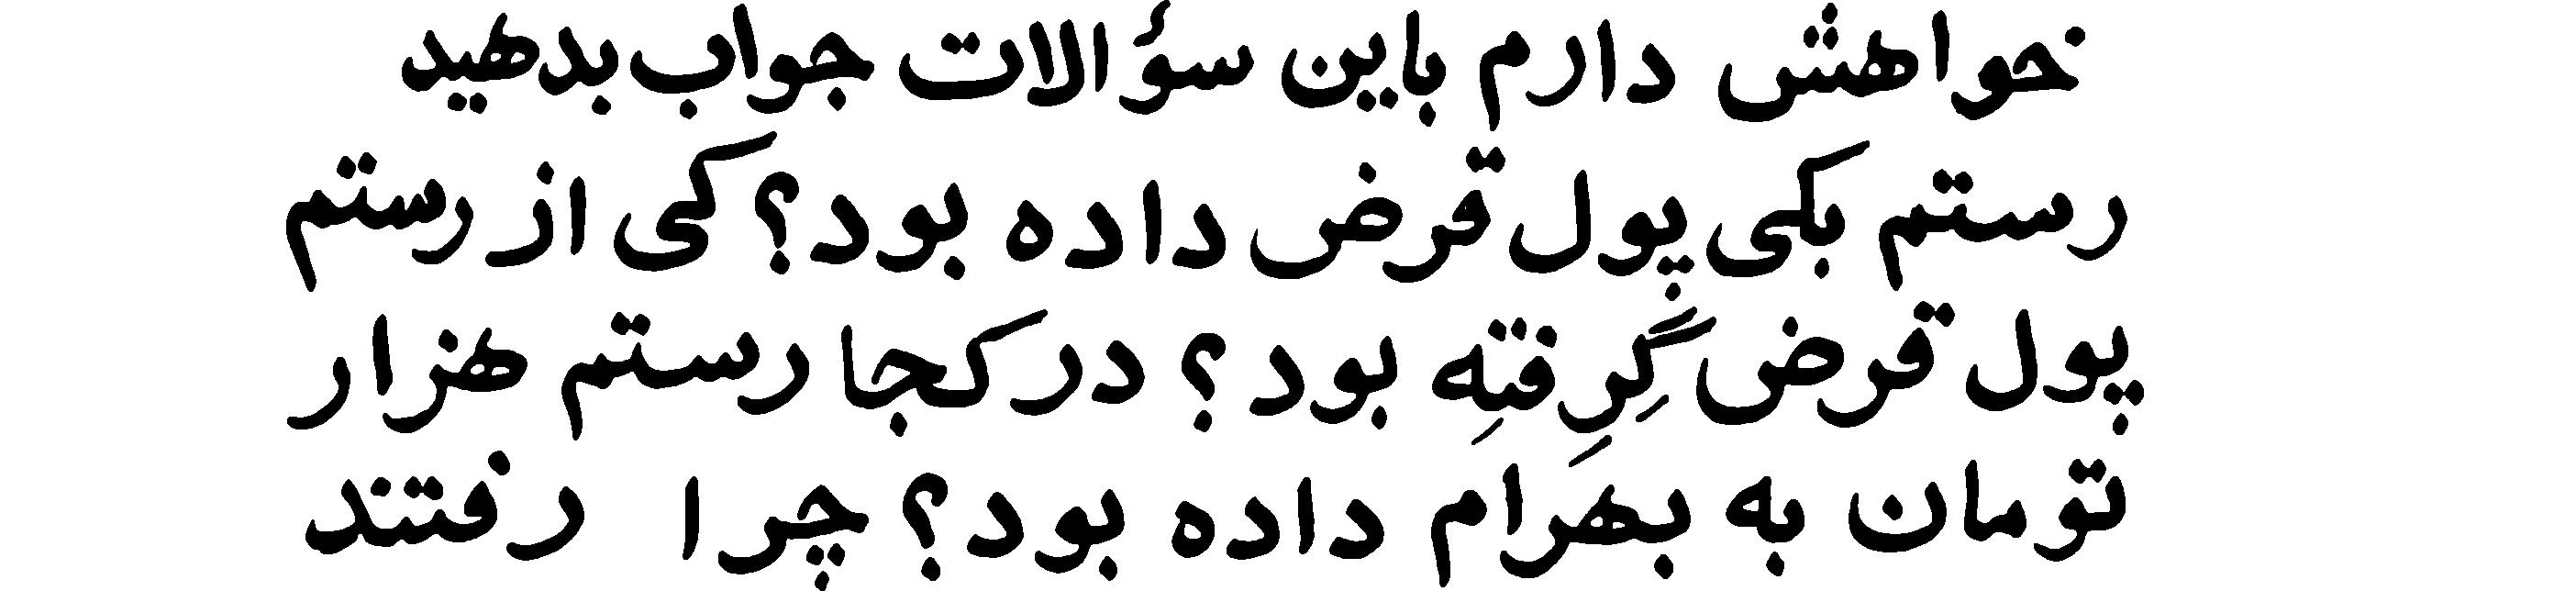 خواهش دارم باین سؤالات جواب بدهید
رستم بکی پول قرض داده بود؟ کی از رستم
پول قرض گِرِفتِه بود؟ در کجا رستم هزار
تومان به بهرام داده بود؟ چرا رفتند